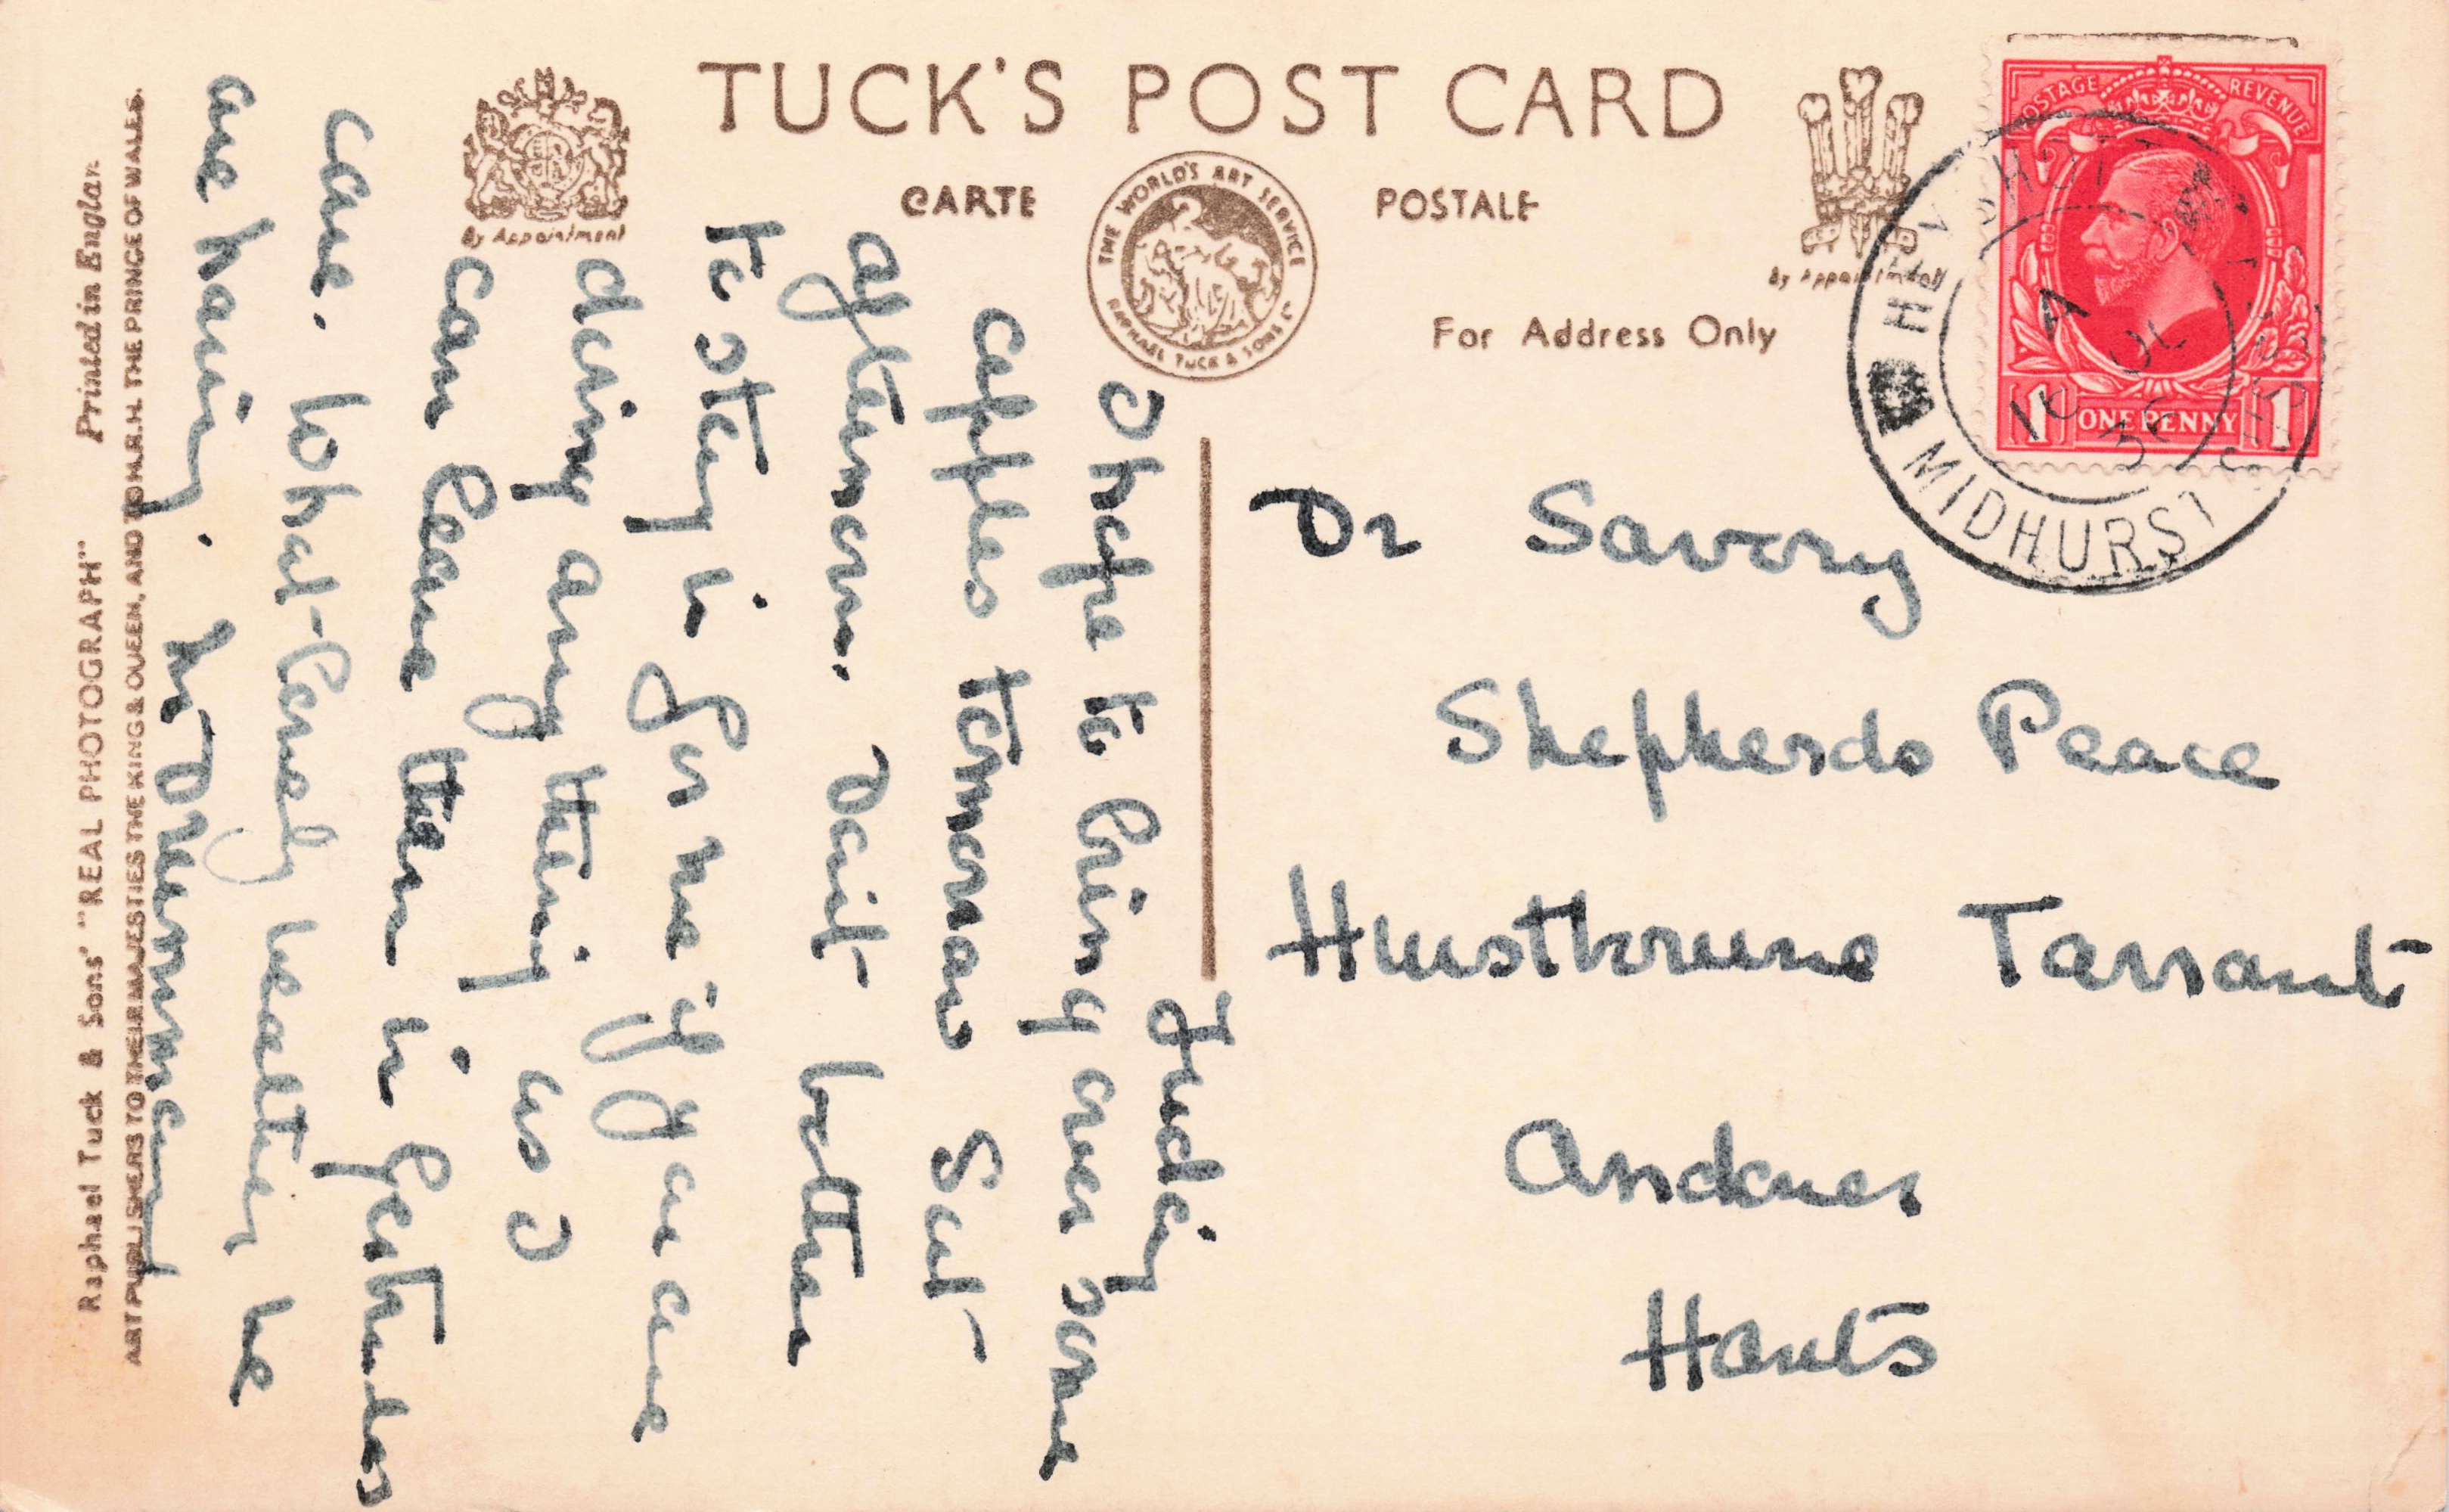 TUCK'S POST CARD
CARTE POSTALE
By Appointment
THE WORLD'S ART SERVICE
RAPHAEL TUCK & SONS LD
By Appointment
For Address Only
POSTAGE REVENUE
1 ONE PENNY 1
HEYSHOTT
MIDHURST
A
10 JL
36
Dr Savory
Shepherds Peace
Hurstbourne Tarrant
Andover
Hants
Friday
I hope to bring over some
apples tomorrow Sat
afternoon. Don't bother
to stay in for me if you are
doing anything as I
can leave them in Gertrudes
care. What lovely weather we
are having.
Raphael Tuck & Sons' "REAL PHOTOGRAPH" Printed in England
ART PUBLISHERS TO THEIR MAJESTIES THE KING & QUEEN, AND TO H.R.H. THE PRINCE OF WALES.